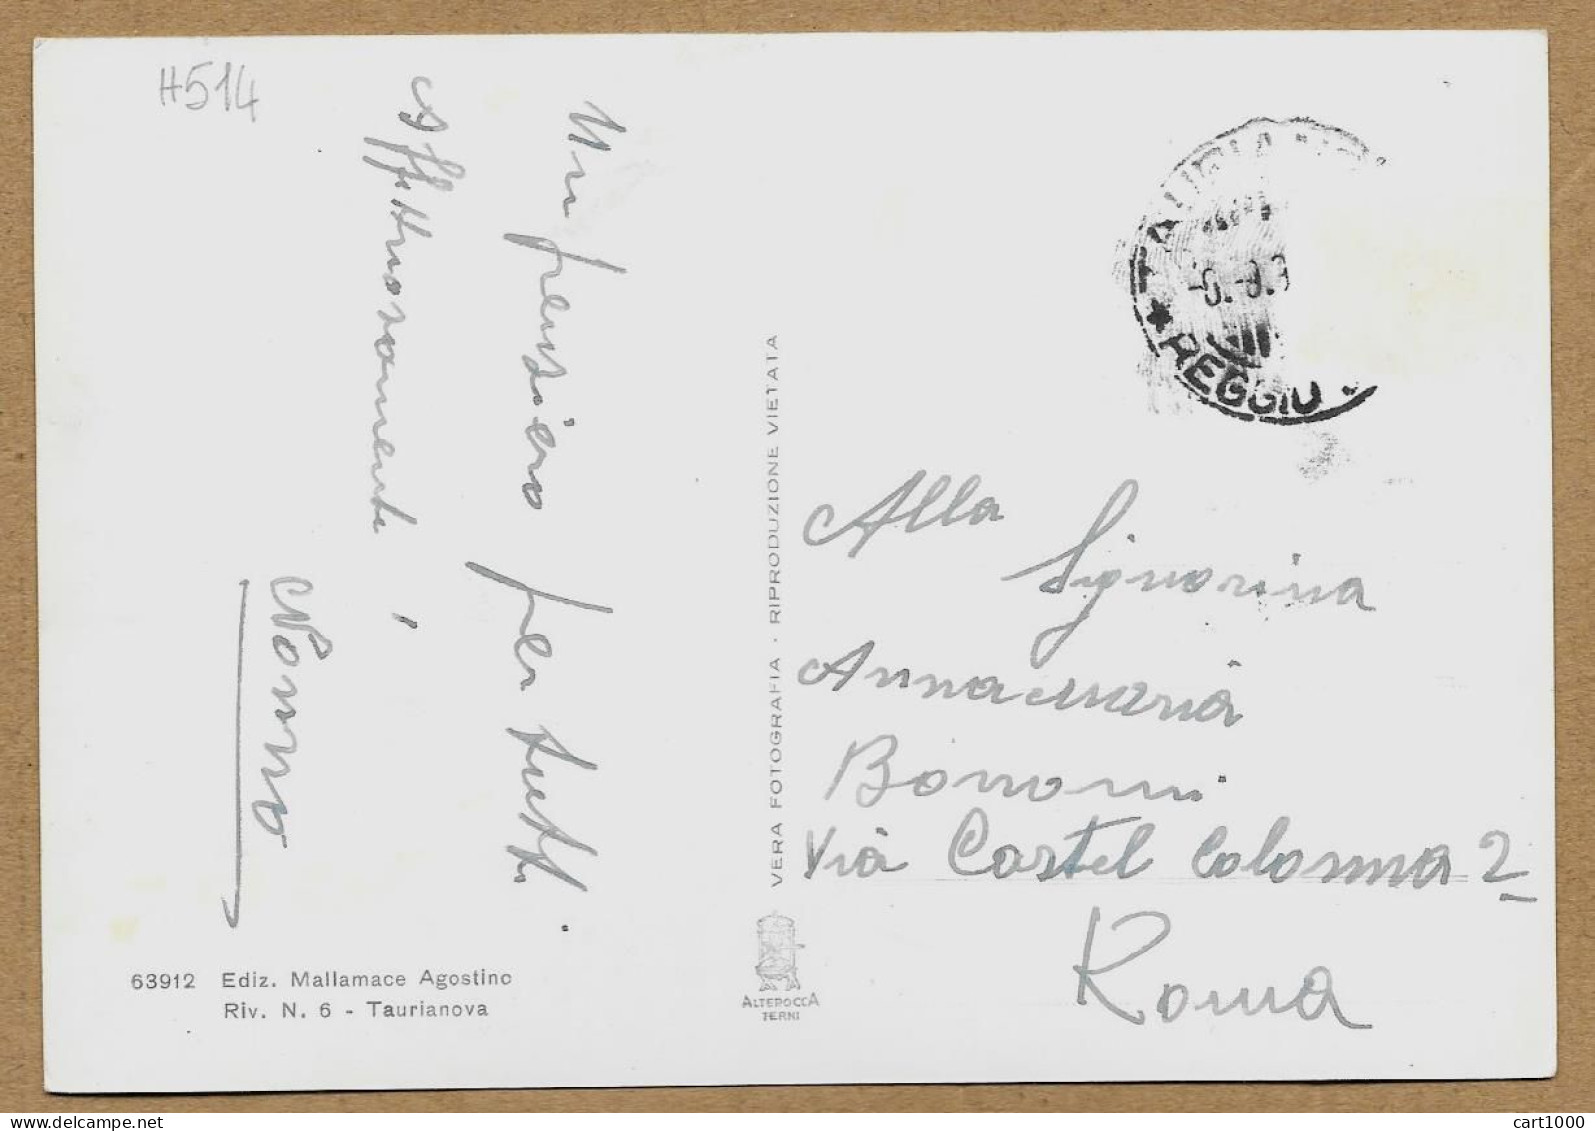 H514
Un pensiero per tutti.
Affettuosamente,
Nonno
63912 Ediz. Mallamace Agostino
Riv. N. 6 - Taurianova
VERA FOTOGRAFIA · RIPRODUZIONE VIETATA
ALTEROCCA
TERNI
REGGIO
Alla
Signorina
Annamaria
Bonomi
Via Castel Colonna 2
Roma
www.delcampe.net
cart1000